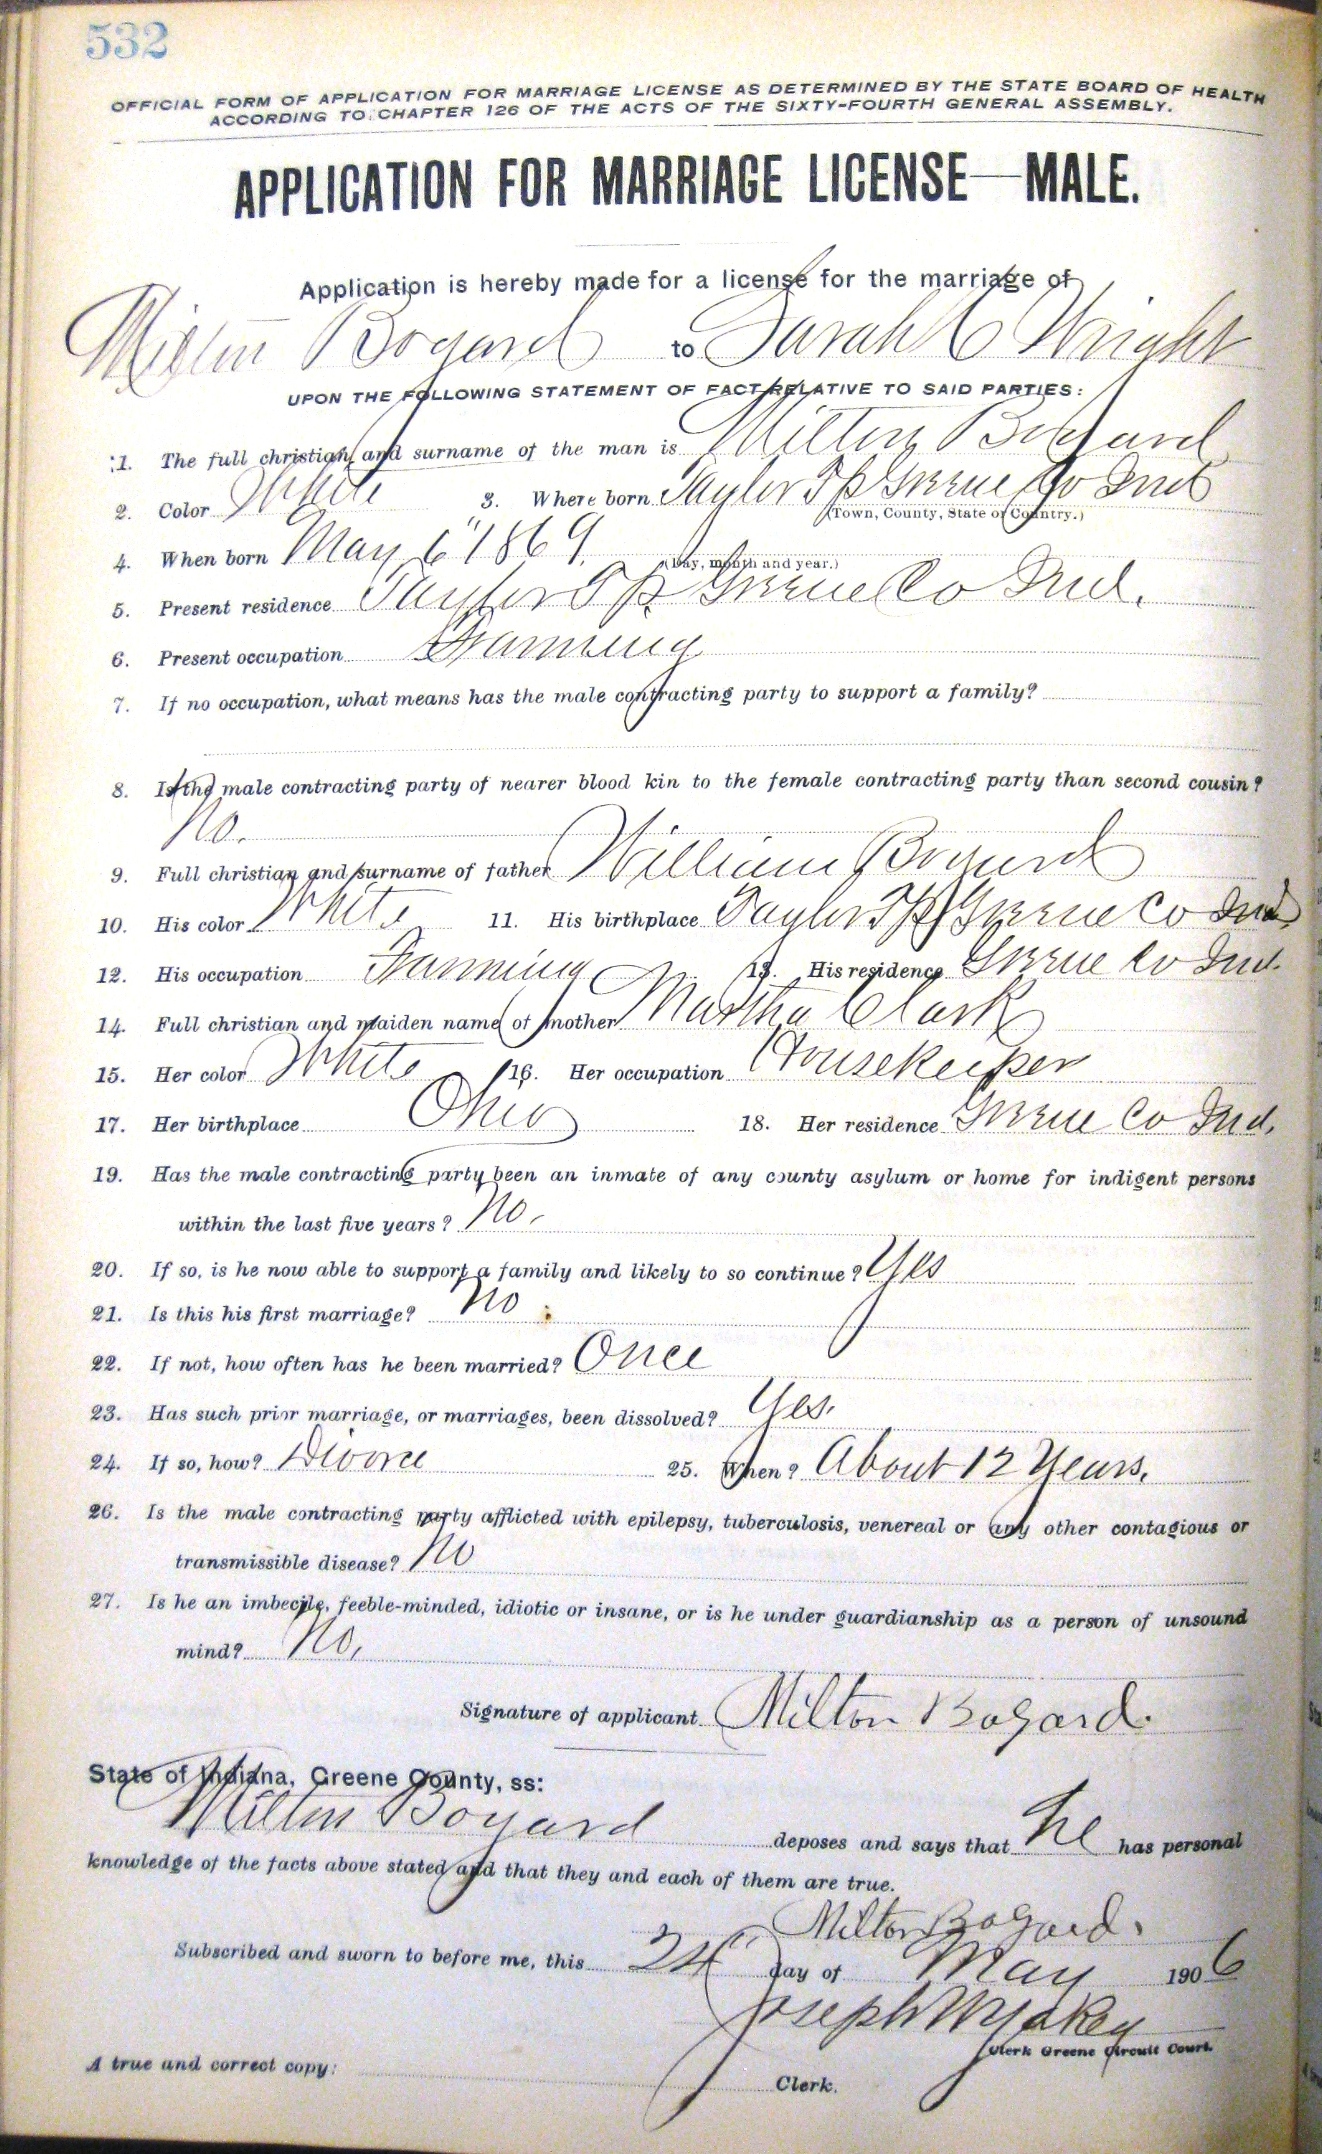 532
OFFICIAL FORM OF APPLICATION FOR MARRIAGE LICENSE AS DETERMINED BY THE STATE BOARD OF HEALTH
ACCORDING TO CHAPTER 126 OF THE ACTS OF THE SIXTY-FOURTH GENERAL ASSEMBLY.
APPLICATION FOR MARRIAGE LICENSE—MALE.
Application is hereby made for a license for the marriage of
Milton Bogard to Sarah C Wright
UPON THE FOLLOWING STATEMENT OF FACT RELATIVE TO SAID PARTIES:
1. The full christian and surname of the man is Milton Bogard
2. Color White 3. Where born Taylor Tp Greene Co Ind
(Town, County, State or Country.)
4. When born May 6" 1869.
(Day, month and year.)
5. Present residence Taylor Tp. Greene Co Ind.
6. Present occupation Farming
7. If no occupation, what means has the male contracting party to support a family?
8. Is the male contracting party of nearer blood kin to the female contracting party than second cousin?
No.
9. Full christian and surname of father William Bogard
10. His color White 11. His birthplace Taylor Tp Greene Co Ind.
12. His occupation Farming 13. His residence Greene Co Ind.
14. Full christian and maiden name of mother Martha Clark
15. Her color White 16. Her occupation Housekeeper
17. Her birthplace Ohio 18. Her residence Greene Co Ind.
19. Has the male contracting party been an inmate of any county asylum or home for indigent persons
within the last five years? No.
20. If so, is he now able to support a family and likely to so continue? Yes
21. Is this his first marriage? No
22. If not, how often has he been married? Once
23. Has such prior marriage, or marriages, been dissolved? Yes.
24. If so, how? Divorce 25. When? About 12 Years.
26. Is the male contracting party afflicted with epilepsy, tuberculosis, venereal or any other contagious or
transmissible disease? No
27. Is he an imbecile, feeble-minded, idiotic or insane, or is he under guardianship as a person of unsound
mind? No.
Signature of applicant Milton Bogard.
State of Indiana, Greene County, ss:
Milton Bogard deposes and says that he has personal
knowledge of the facts above stated and that they and each of them are true.
Milton Bogard.
Subscribed and sworn to before me, this 24" day of May 1906
Joseph W Yakey
Clerk Greene Circuit Court.
A true and correct copy: Clerk.